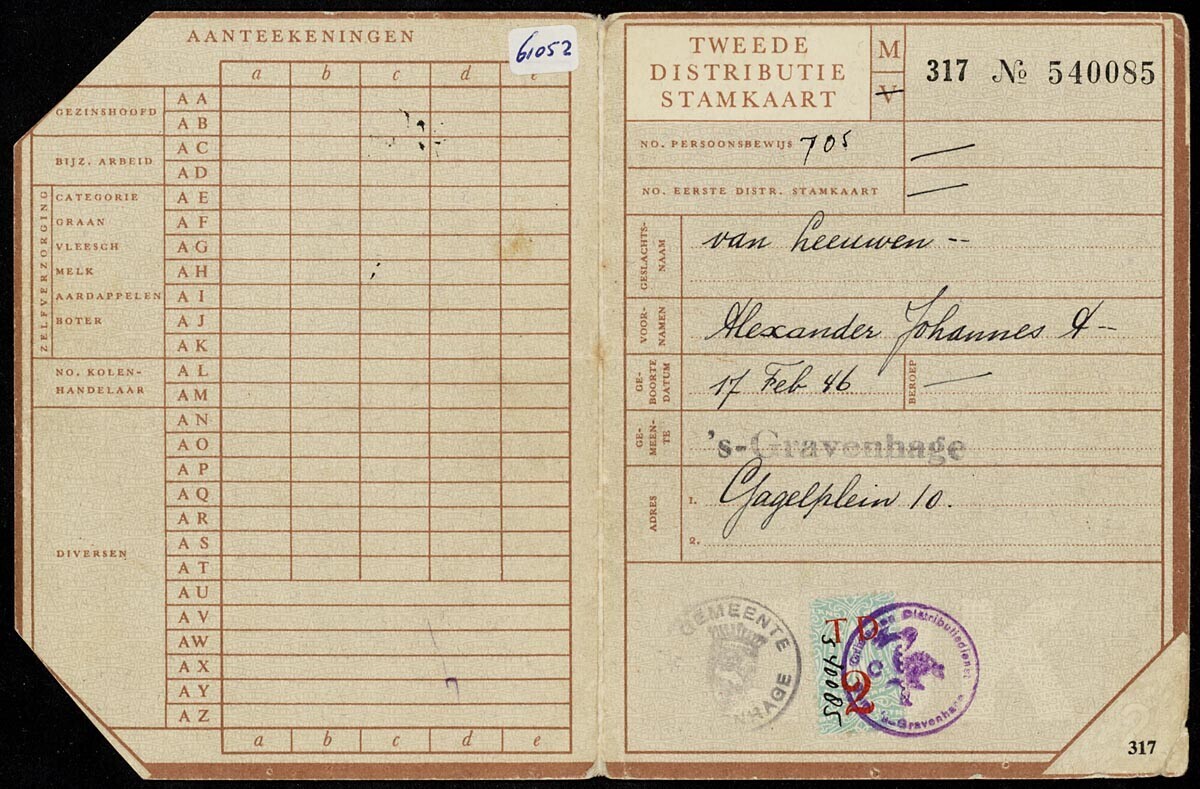 AANTEEKENINGEN
61052
a b c d e
GEZINSHOOFD
AA
AB
BIJZ. ARBEID
AC
AD
ZELFVERZORGING
CATEGORIE AE
GRAAN AF
VLEESCH AG
MELK AH
AARDAPPELEN AI
BOTER AJ
AK
NO. KOLEN-
HANDELAAR
AL
AM
DIVERSEN
AN
AO
AP
AQ
AR
AS
AT
AU
AV
AW
AX
AY
AZ
a b c d e
TWEEDE
DISTRIBUTIE
STAMKAART
M
V
317 № 540085
NO. PERSOONSBEWIJS 705 —
NO. EERSTE DISTR. STAMKAART —
GESLACHTS-
NAAM
van Leeuwen --
VOOR-
NAMEN
Alexander Johannes A —
GE-
BOORTE
DATUM
17 Feb 46
BEROEP —
GE-
MEEN-
TE
's-Gravenhage
ADRES
1. Gagelplein 10.
2.
GEMEENTE
NHAGE
TD
2
540085
Distributiedienst
's-Gravenhage
317